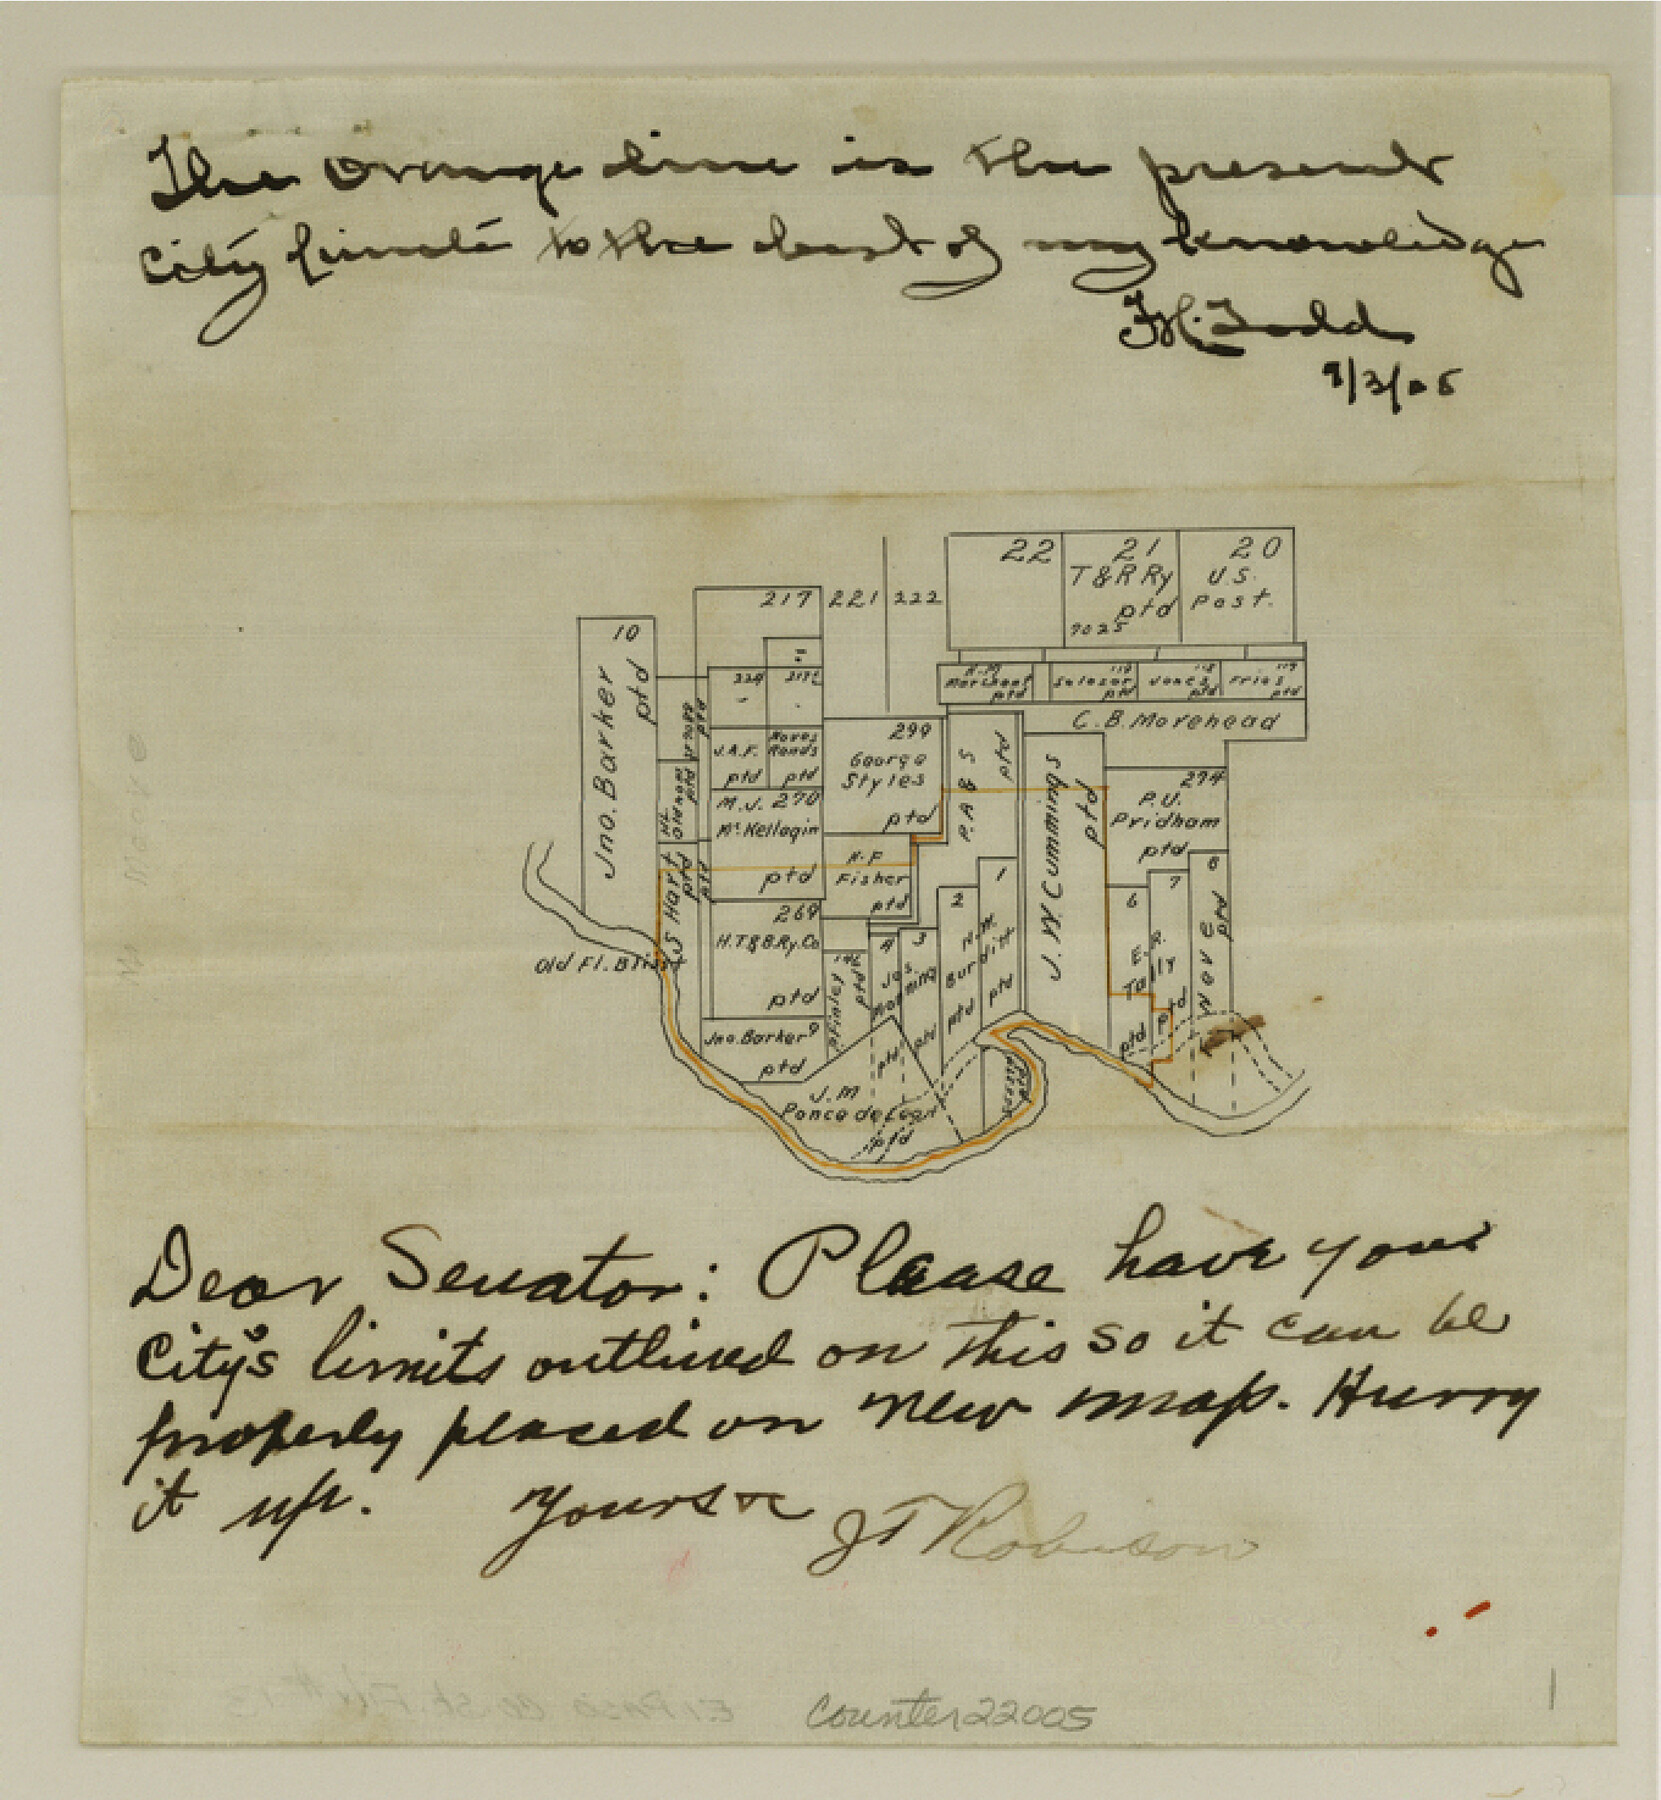 The orange line is the present
City limits to the best of my knowledge
Todd
9/3/05
22
21
T & R Ry
ptd
7025
20
U.S.
Post.
217
221
222
10
Jno. Barker
ptd
224
217½
H.M.
Marchant
ptd
118
Salazar
ptd
118
Jones
ptd
117
Frias
ptd
C. B. Morehead
J.A.F.
ptd
Roads
ptd
299
George
Styles
ptd
P. A & S
ptd
J. W. Cummings
ptd
274
P.U.
Pridham
ptd
M.J. 270
McKellagin
ptd
S Hart
ptd
ptd
Fisher
ptd
269
H.T&B.Ry.Co
ptd
Old Fl. Blisst
Jno. Barker 9
ptd
Finley
ptd
4
3
Jas.
ptd
ptd
2
1
Burditt
ptd
ptd
6
7
8
E. R.
Tally
ptd
ptd
ptd
J. M
Ponce de Leon
ptd
Dear Senator: Please have your
City's limits outlined on this so it can be
properly placed on new map. Hurry
it up. Yours &c J T Robison
Counter 22005
1